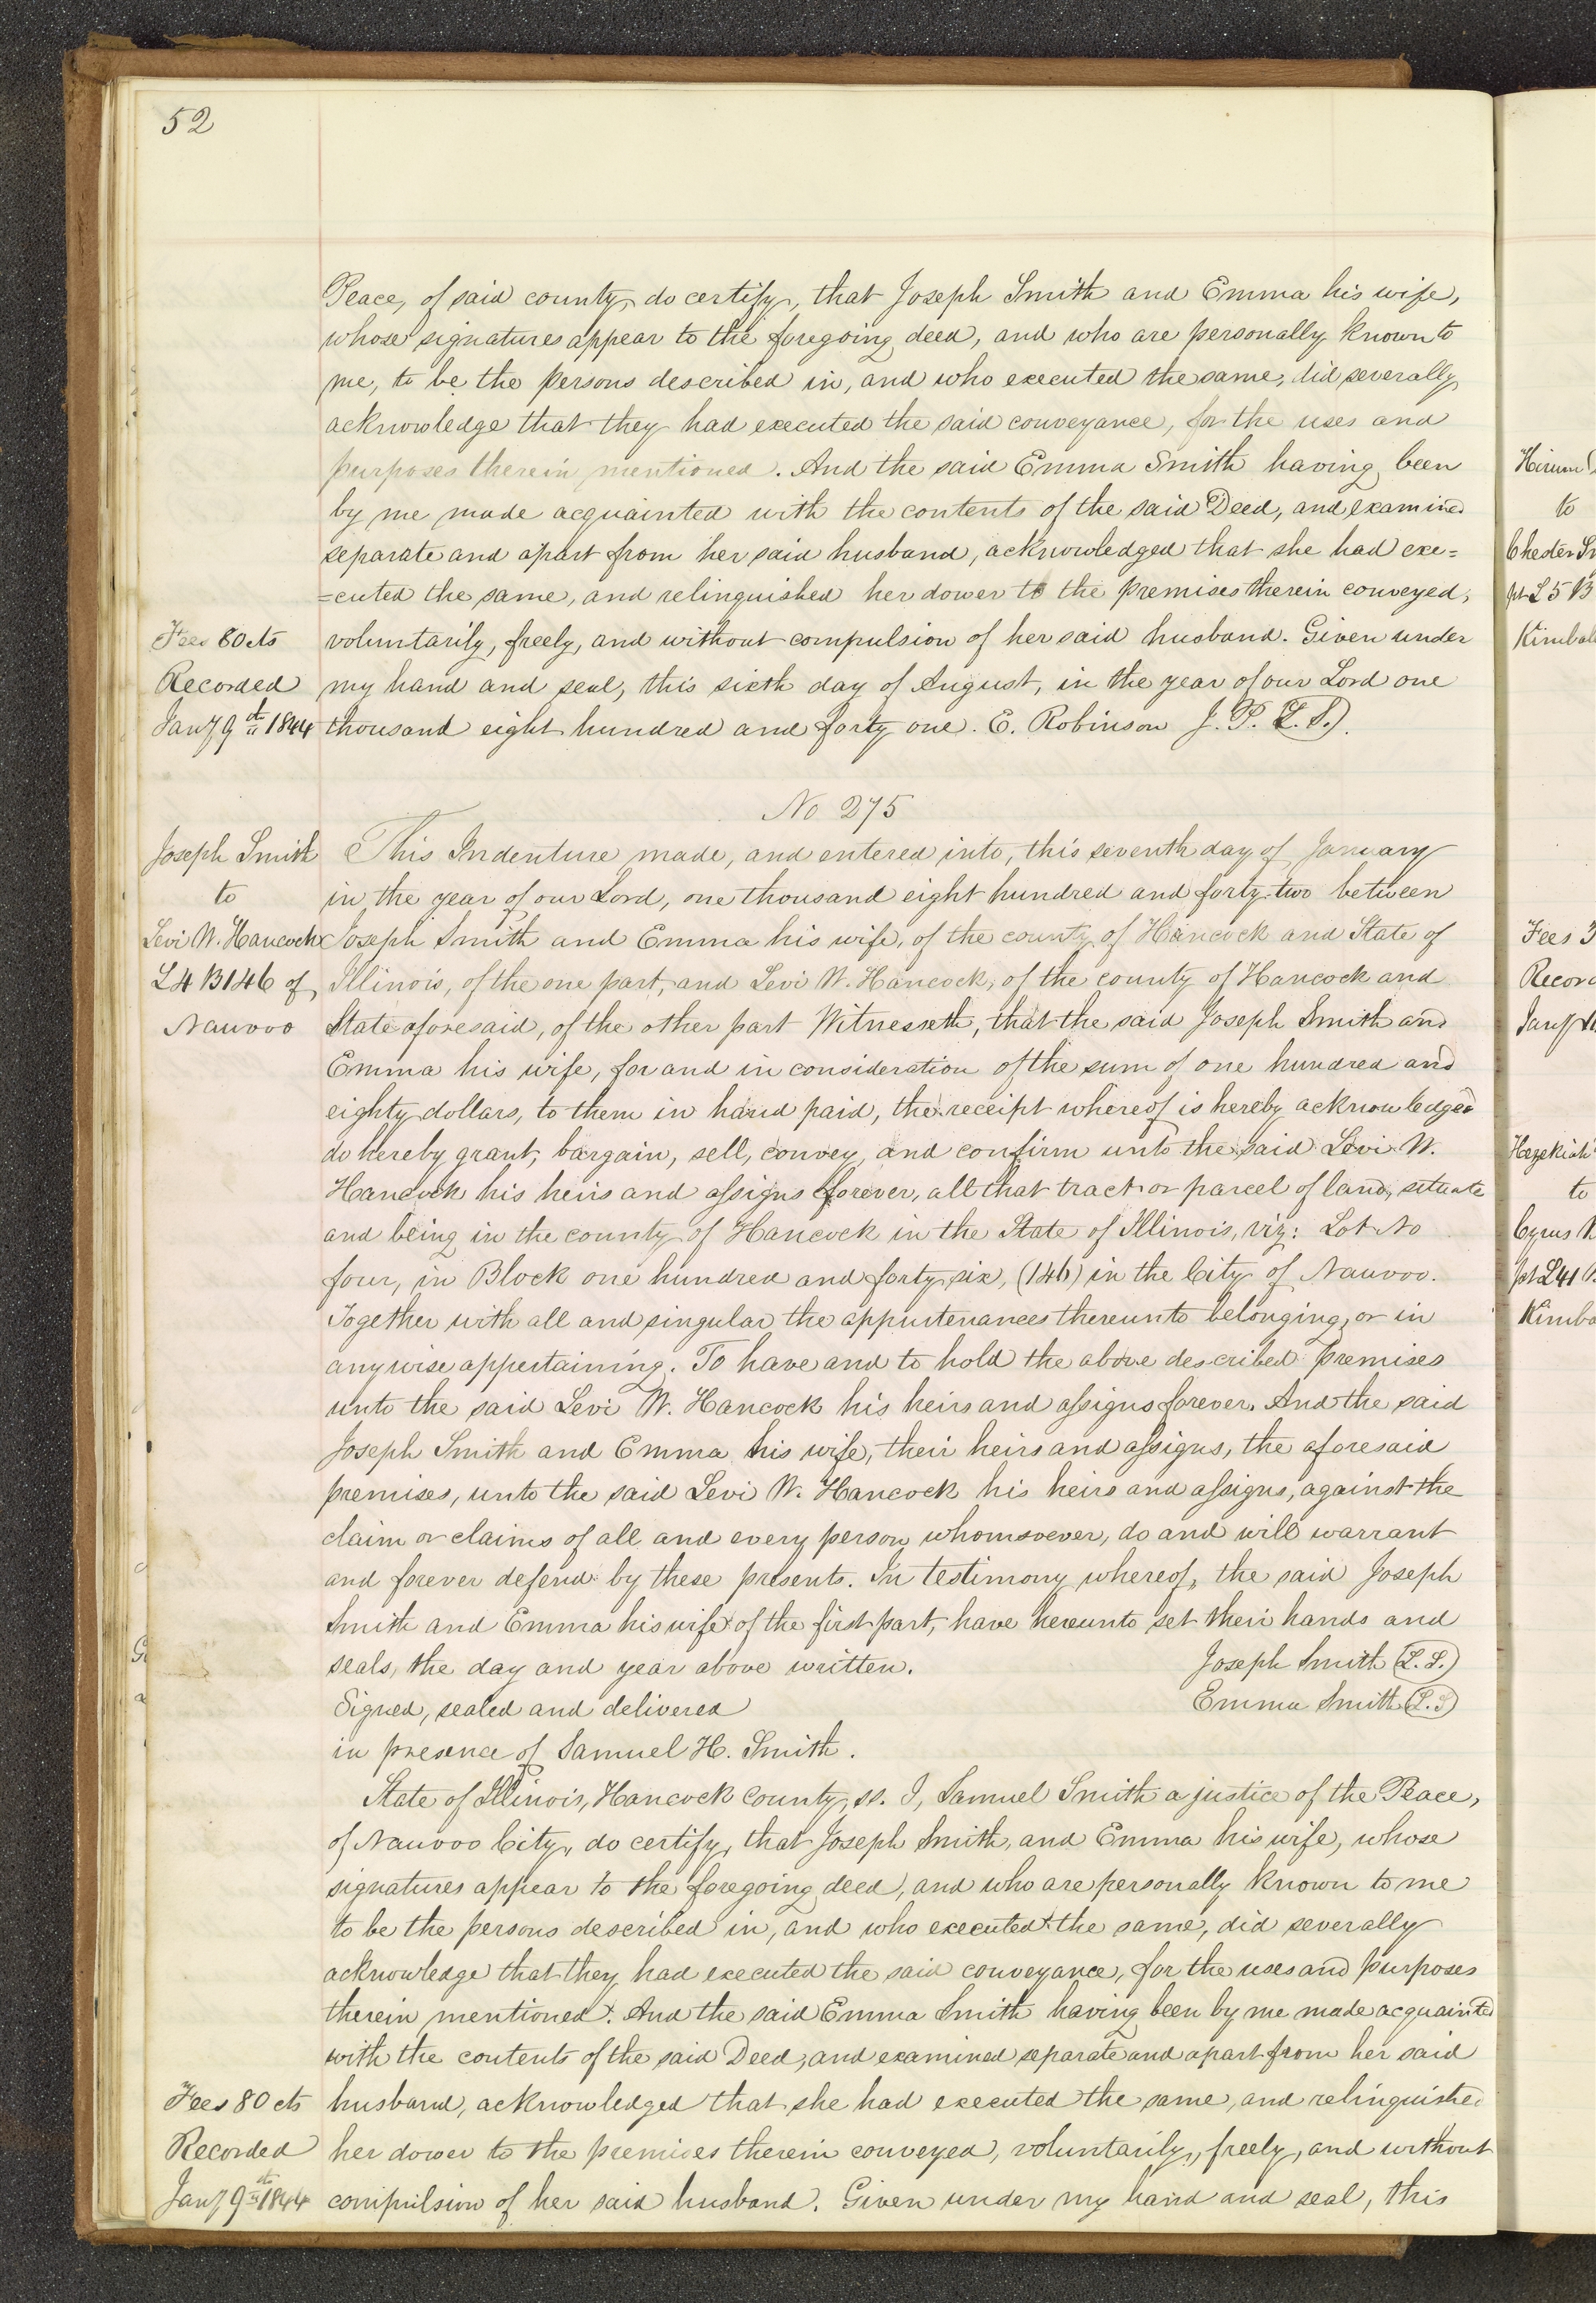 52
Peace, of said county, do certify, that Joseph Smith and Emma his wife,
whose signatures appear to the foregoing deed, and who are personally known to
me, to be the persons described in, and who executed the same, did severally
acknowledge that they had executed the said conveyance, for the uses and
purposes therein mentioned. And the said Emma Smith having been
by me made acquainted with the contents of the said Deed, and examined
separate and apart from her said husband, acknowledged that she had exe=
=cuted the same, and relinquished her dower to the premises therein conveyed,
Fees 80 cts
voluntarily, freely, and without compulsion of her said husband. Given under
Recorded
my hand and seal, this sixth day of August, in the year of our Lord one
Jany 9th 1844
thousand eight hundred and forty one. E. Robinson J. P. (L. S.).
No 275
Joseph Smith
to
Levi W. Hancock
L4 B146 of
Nauvoo
This Indenture made, and entered into, this seventh day of January
in the year of our Lord, one thousand eight hundred and forty-two between
Joseph Smith and Emma his wife, of the county of Hancock and State of
Illinois, of the one part, and Levi W. Hancock, of the county of Hancock and
State aforesaid, of the other part Witnesseth, that the said Joseph Smith and
Emma his wife, for and in consideration of the sum of one hundred and
eighty dollars, to them in hand paid, the receipt whereof is hereby acknowledged
do hereby grant, bargain, sell, convey, and confirm unto the said Levi W.
Hancock his heirs and assigns forever, all that tract or parcel of land, situate
and being in the county of Hancock in the State of Illinois, viz: Lot No
four, in Block one hundred and forty six, (146) in the City of Nauvoo.
Together with all and singular the appurtenances thereunto belonging, or in
anywise appertaining. To have and to hold the above described premises
unto the said Levi W. Hancock his heirs and assigns forever. And the said
Joseph Smith and Emma his wife, their heirs and assigns, the aforesaid
premises, unto the said Levi W. Hancock his heirs and assigns, against the
claim or claims of all and every person whomsoever, do and will warrant
and forever defend by these presents. In testimony whereof, the said Joseph
Smith and Emma his wife of the first part, have hereunto set their hands and
seals, the day and year above written. Joseph Smith (L. S.)
Signed, sealed and delivered Emma Smith (L. S)
in presence of Samuel H. Smith.
State of Illinois, Hancock County, ss. I, Samuel Smith a justice of the Peace,
of Nauvoo City, do certify, that Joseph Smith, and Emma his wife, whose
signatures appear to the foregoing deed, and who are personally known to me
to be the persons described in, and who executed the same, did severally
acknowledge that they had executed the said conveyance, for the uses and purposes
therein mentioned. And the said Emma Smith having been by me made acquainted
with the contents of the said Deed, and examined separate and apart from her said
Fees 80 cts
husband, acknowledged that she had executed the same, and relinquished
Recorded
her dower to the premises therein conveyed, voluntarily, freely, and without
Jany 9th 1844
compulsion of her said husband. Given under my hand and seal, this
Hirum
to
Chester
pt L5 B
Fees 3
Hezekiah
to
Cyrus
pt L41